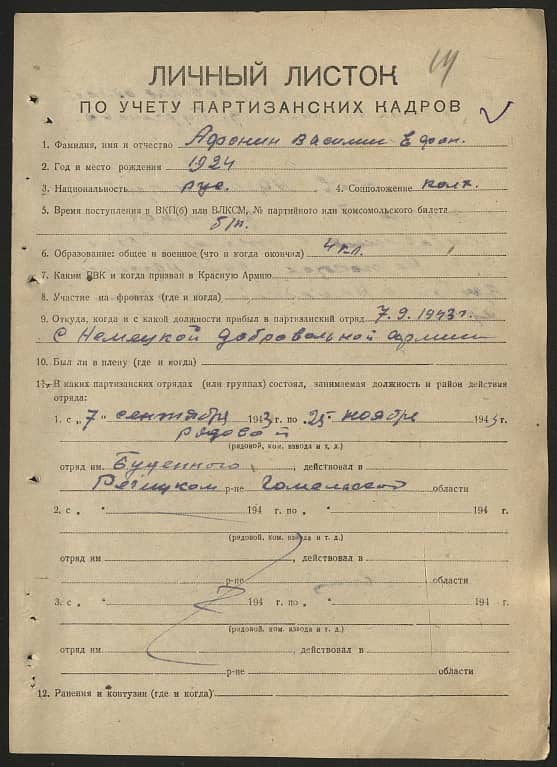 14
ЛИЧНЫЙ ЛИСТОК
ПО УЧЕТУ ПАРТИЗАНСКИХ КАДРОВ
1. Фамилия, имя и отчество Афонин Василий Ефрон.
2. Год и место рождения 1924
3. Национальность рус. 4. Соцположение колх.
5. Время поступления в ВКП(б) или ВЛКСМ, № партийного или комсомольского билета
б/п.
6. Образование: общее и военное (что и когда окончил) 4 кл.
7. Каким РВК и когда призван в Красную Армию
8. Участие на фронтах (где и когда)
9. Откуда, когда и с какой должности прибыл в партизанский отряд 7.9.1943 г.
С Немецкой добровольной армии
10. Был ли в плену (где и когда)
11. В каких партизанских отрядах (или группах) состоял, занимаемая должность и район действия
отряда:
1. с „7" сентября 1943 г. по 25 ноября 1943 г.
рядовой
(рядовой, ком. взвода и т. д.)
отряд им Буденного, действовал в
Речицком р-не Гомельской области
2. с „ " 194 г. по „ " 194 г.
(рядовой, ком. взвода и т. д.)
отряд им , действовал в
р-не области
3. с „ " 194 г. по „ " 194 г.
(рядовой, ком. взвода и т. д.)
отряд им , действовал в
р-не области
12. Ранения и контузии (где и когда)